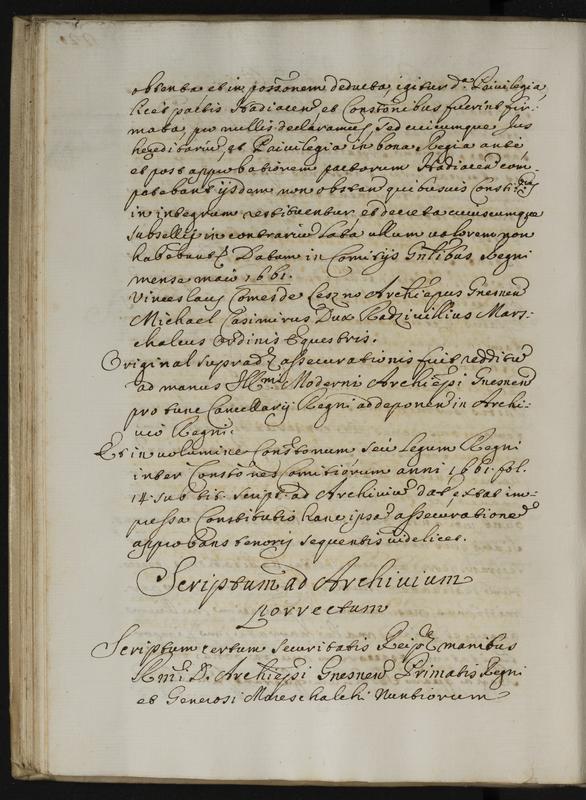 obtenta et in possonem deducta, igitur da Privilegia,
licet pactis Hadiacen et Constonibus fuerint fir-
mata, pro nullis declaramus, sed cuicumque Jus
hereditariu, et Privilegia in bona Regia ante
et post approbationem pactorum Hadiacen com
petebant ijsdem non obstan quibusuis Constibus
in integrum restituentur, et decreta cuiuscumque
subsellij in contrariu lata ullum valorem non
habebunt. Datum in Comitijs Gnlibus Regni
mense maio 1661.
Vinceslaus Comes de Leszno Archiepus Gnesnen
Michael Casimirus Dux Radziuillius Mars-
chalcus Ordinis Equestris.
Original supradt assecurationis fuit redditu
ad manus Illmi Moderni Archiepi Gnesnen
pro tunc Cancellarij Regni ad deponen in Archi-
uio Regni.
Et in volumine Constonum seu Legum Regni
inter Constones Comitiorum anni 1661. fol.
14. sub tit. script. ad Archiviu dat extat im-
pressa Constitutio hanc ipsa assecuratione
approbans tenoris sequentis videlicet.
Scriptum ad Archivium
porrectum
Scriptum certum securitatis Reiplae manibus
Rmi D. Archiepi Gnesnen Primatis Regni
et Generosi Mareschalchi Nuntiorum